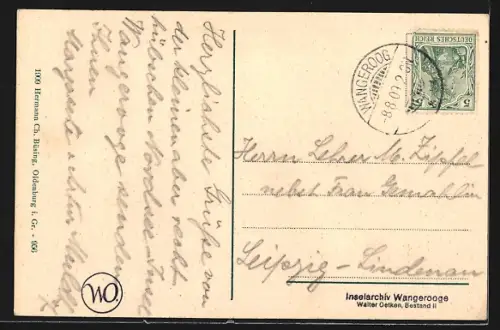 Herzliebste Grüße von
der kleinen aber recht
hübschen Nordsee Insel
Wangerooge senden
Ihnen
Margarete
1909 Hermann Ch. Büsing, Oldenburg i. Gr. - 956
DEUTSCHES REICH
5 5
WANGEROOG
8.8.09.
Herrn Lehrer M. Zipfel
nebst Frau Gemahlin
Leipzig-Lindenau
Inselarchiv Wangerooge
Walter Oetken, Bestand II